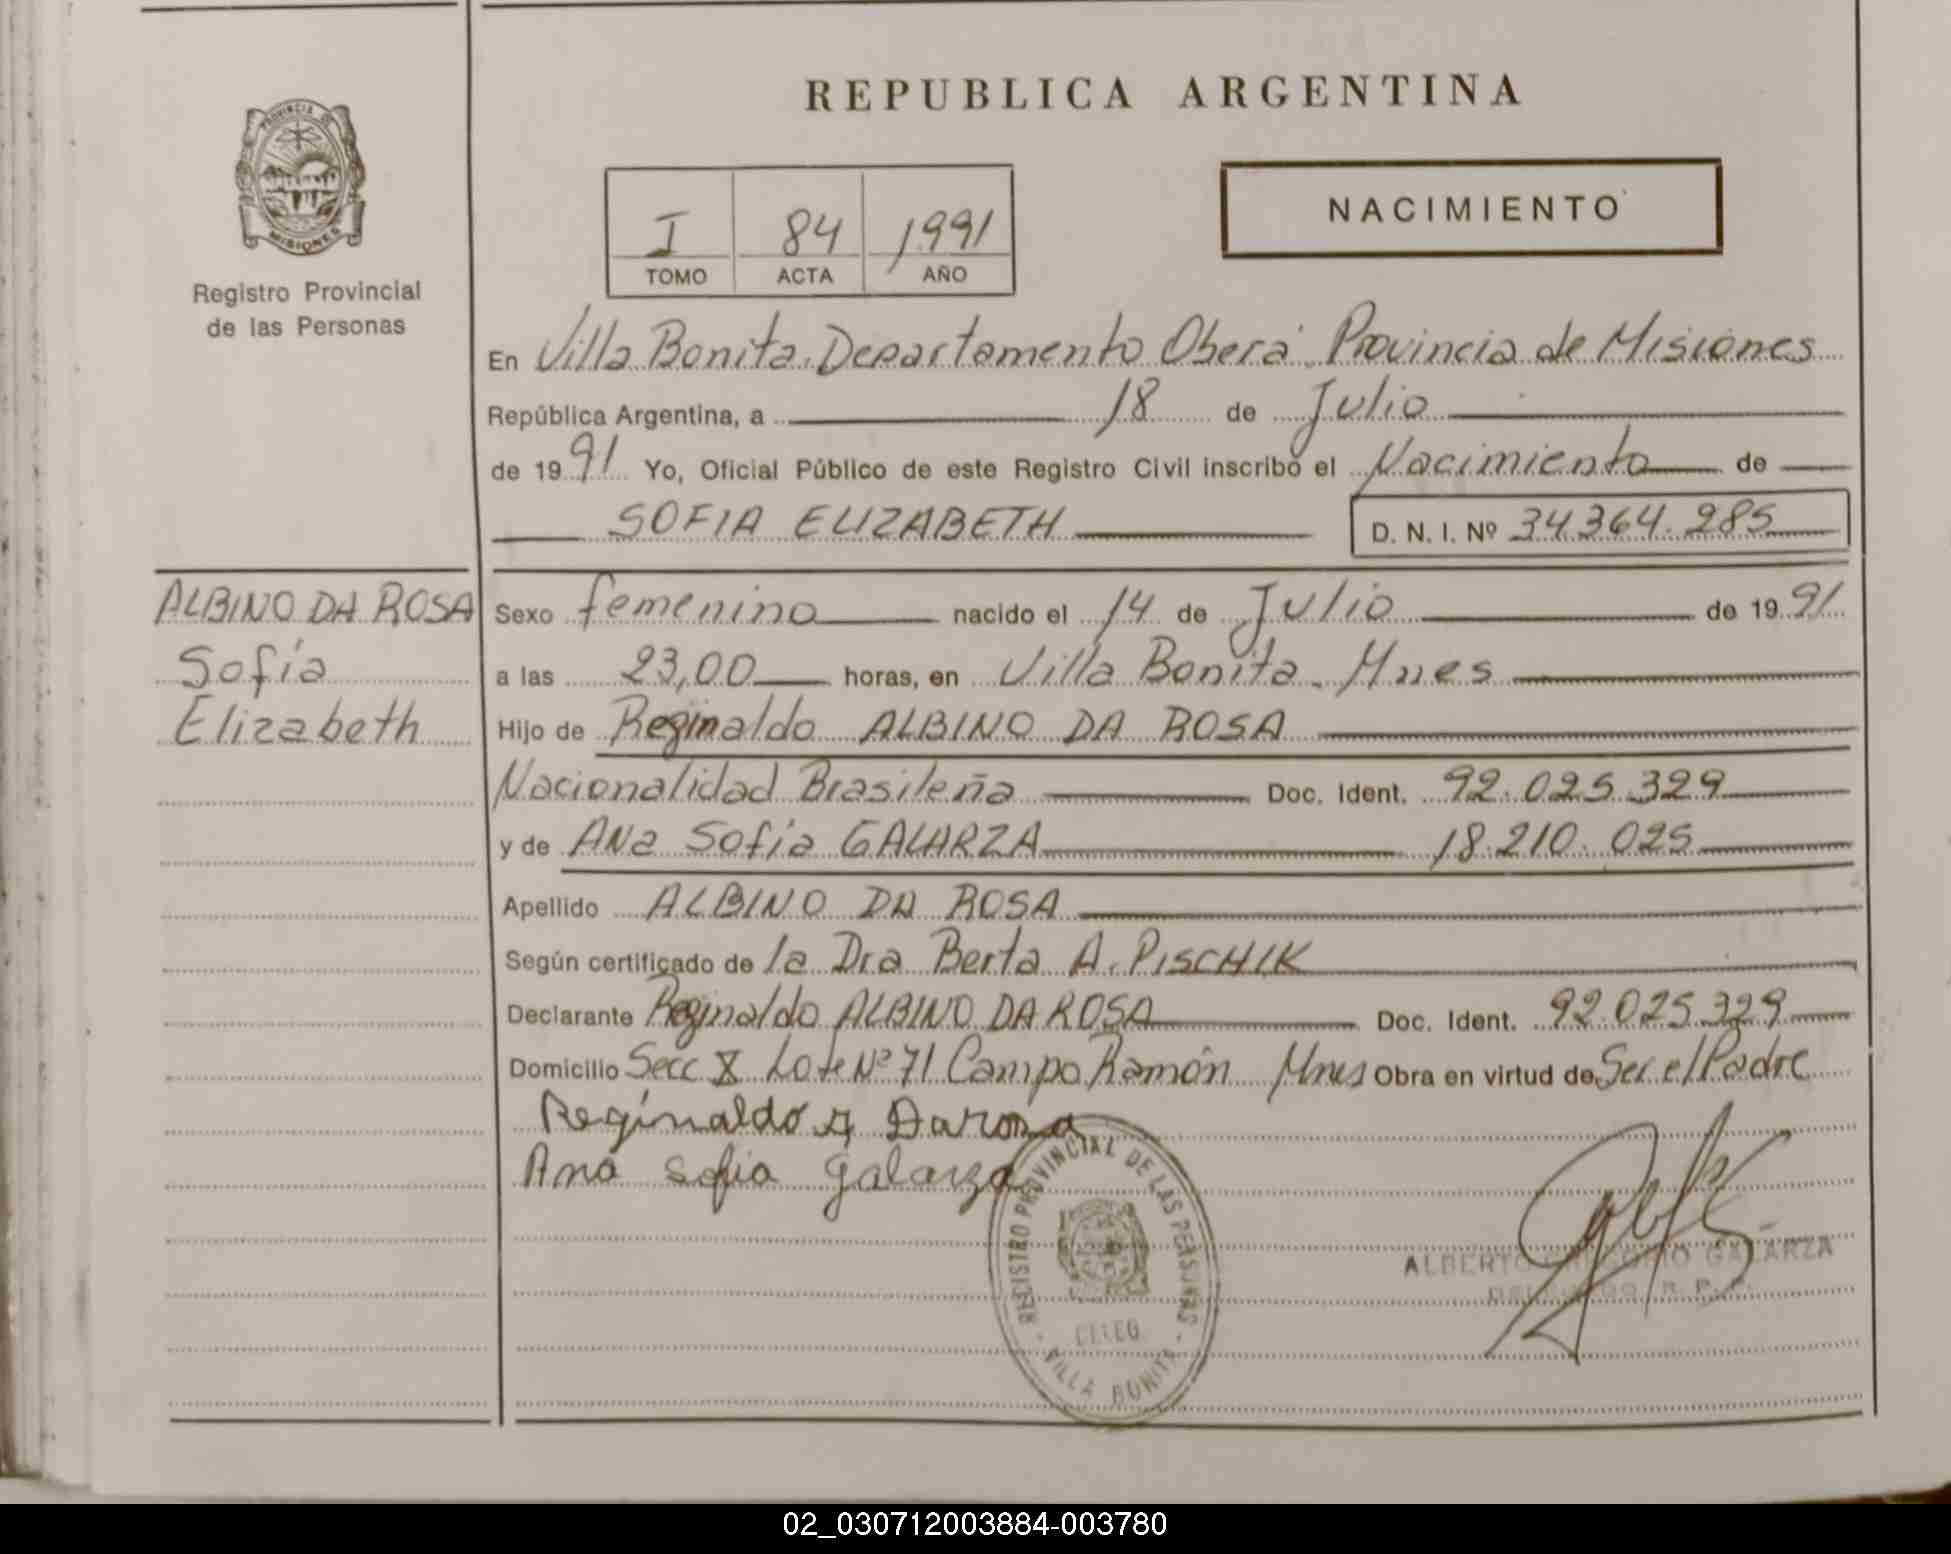 REPUBLICA ARGENTINA
PROVINCIA DE
MISIONES
Registro Provincial
de las Personas
NACIMIENTO
I 84 1991
TOMO ACTA AÑO
En Villa Bonita. Departamento Oberá. Provincia de Misiones
República Argentina, a 18 de Julio
de 1991 Yo, Oficial Público de este Registro Civil inscribo el Nacimiento de
SOFIA ELIZABETH D. N. I. Nº 34.364.285
ALBINO DA ROSA
Sofía
Elizabeth
Sexo femenino nacido el 14 de Julio de 1991
a las 23,00 horas, en Villa Bonita. Mnes
Hijo de Reginaldo ALBINO DA ROSA
Nacionalidad Brasileña Doc. Ident. 92.025.329
y de ANa Sofía GALARZA 18.210.025
Apellido ALBINO DA ROSA
Según certificado de la Dra Berta A. PISCHIK
Declarante Reginaldo ALBINO DA ROSA Doc. Ident. 92.025.329
Domicilio Secc X Lote Nº 71 Campo Ramón Mnes Obra en virtud de Ser el Padre
Reginaldo A Darosa
Ana Sofia Galarza
REGISTRO PROVINCIAL DE LAS PERSONAS
VILLA BONITA
ALBERTO GREGORIO GALARZA
02_030712003884-003780